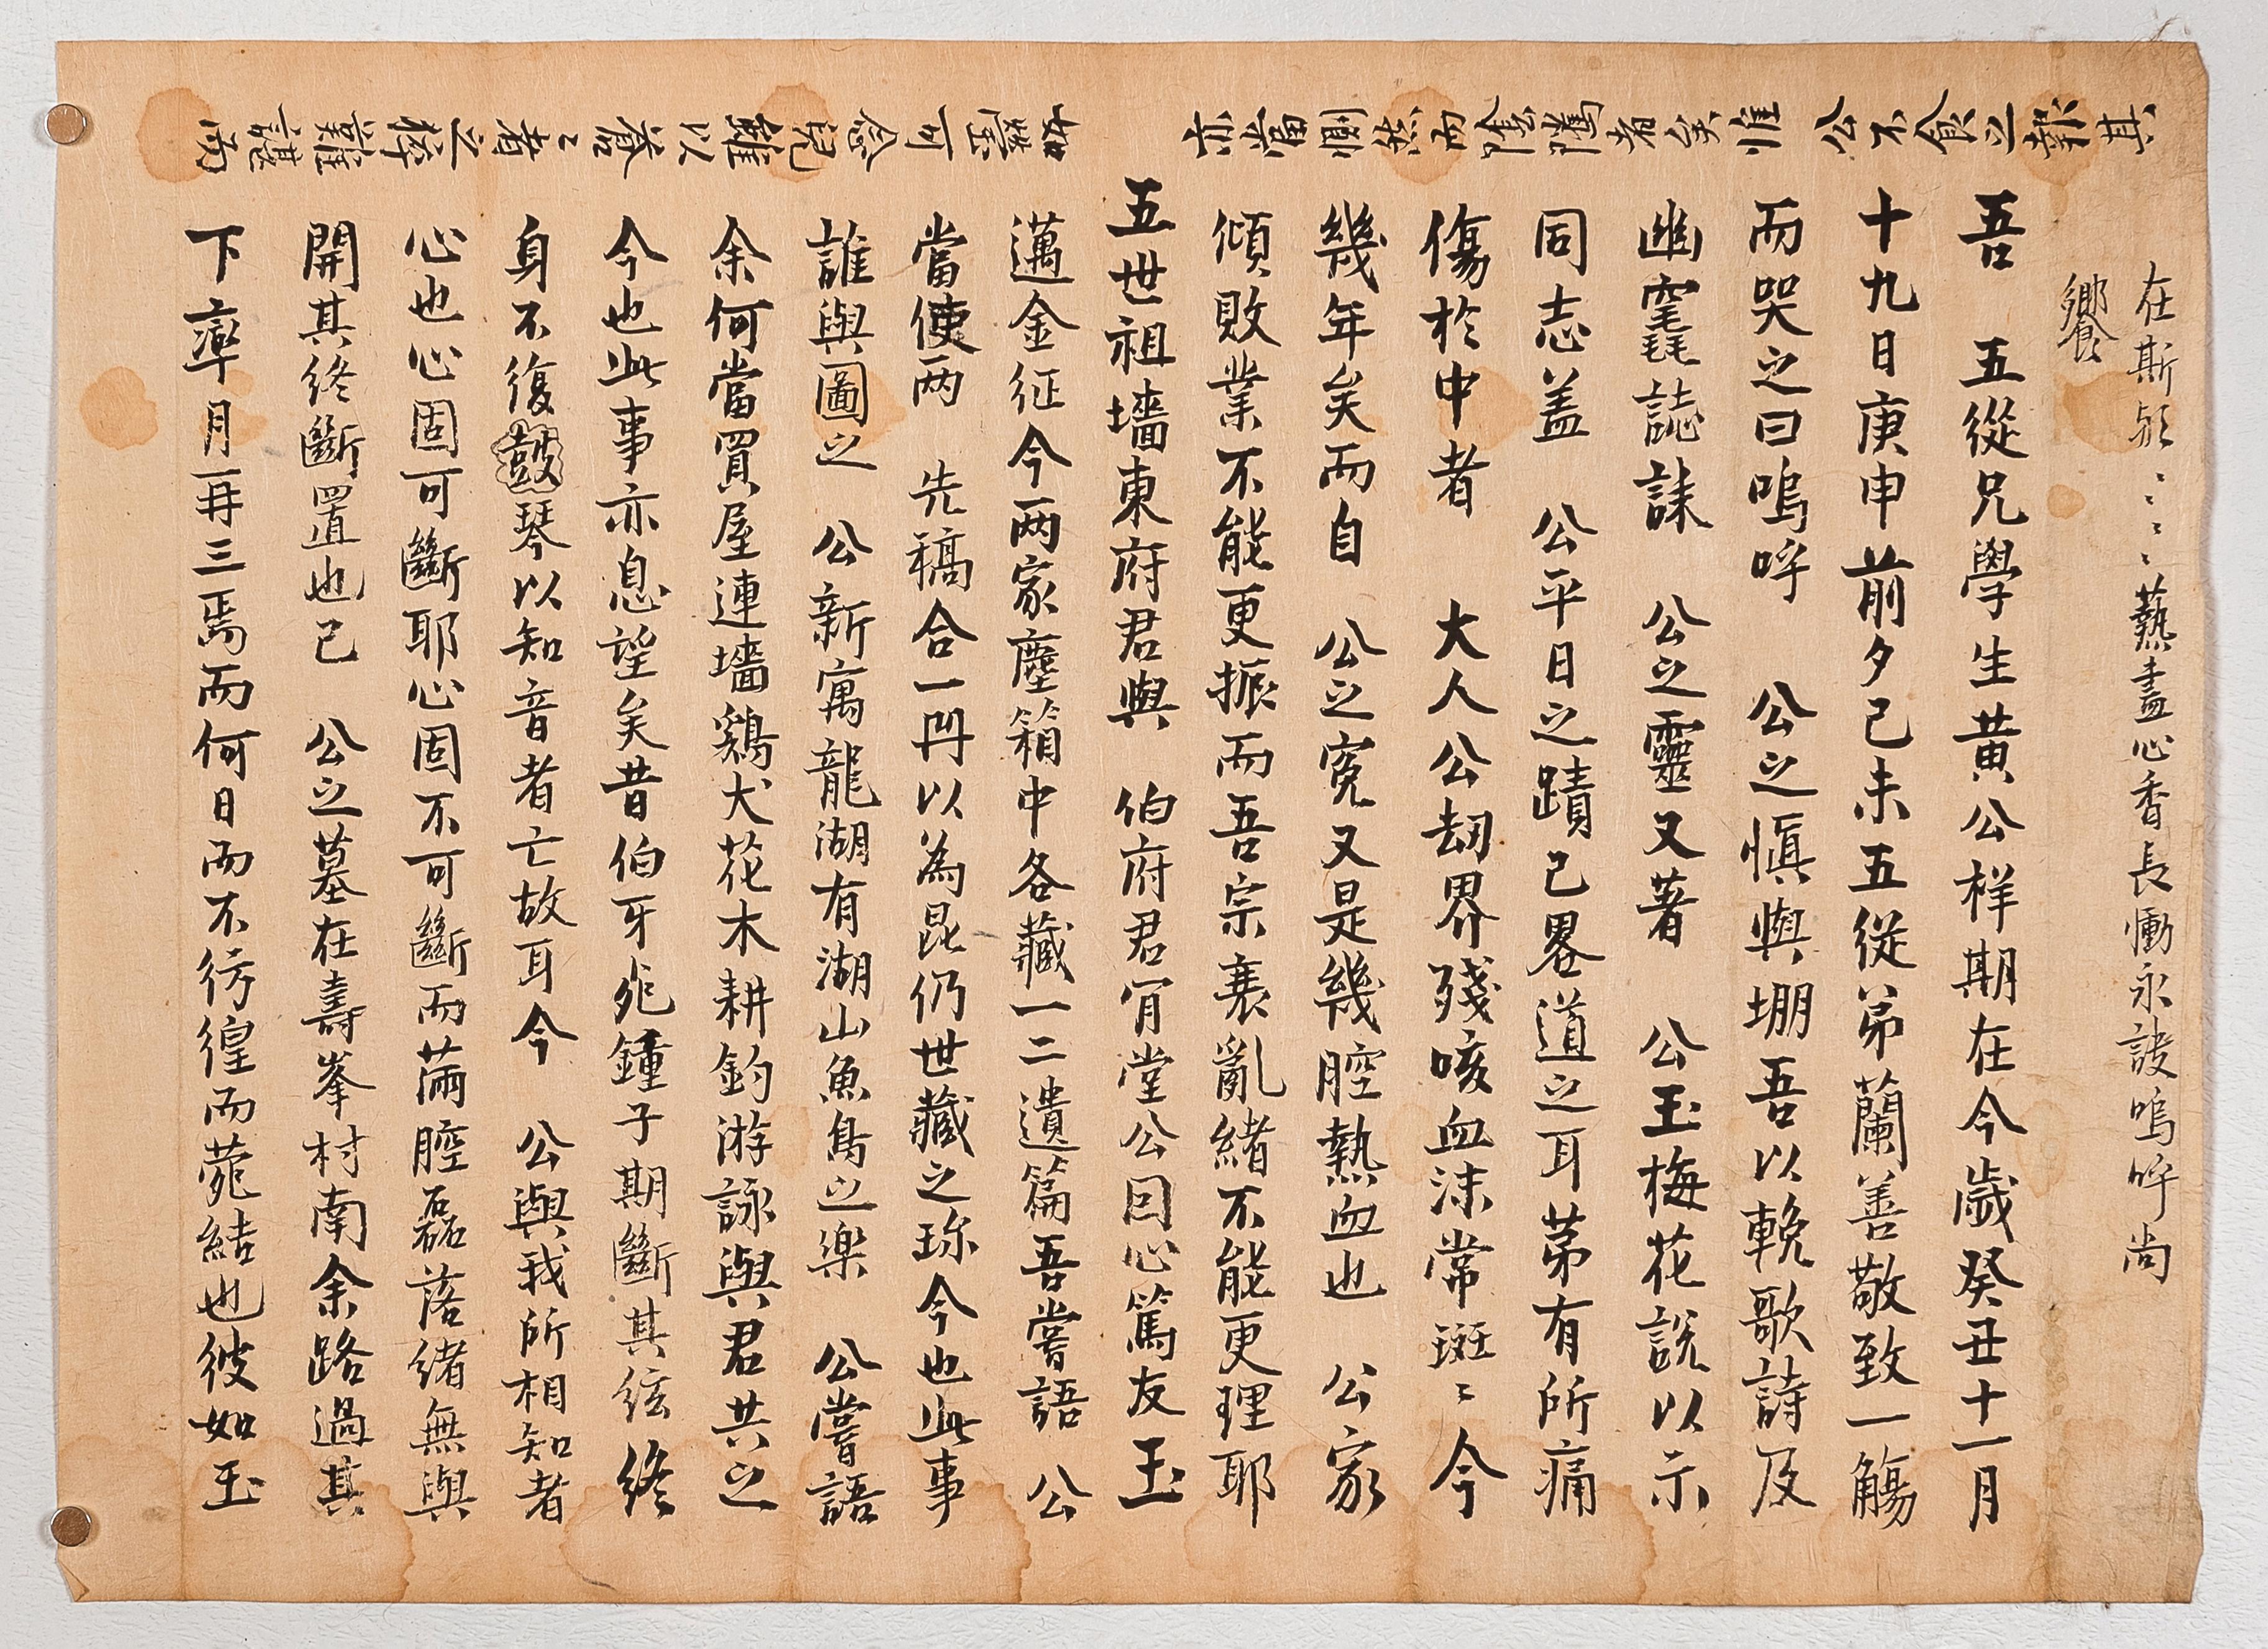 吾 五從兄學生黃公祥期在今歲癸丑十一月
十九日庚申前夕己未五從弟蘭善敬致一觴
而哭之曰嗚呼 公之愼與堋吾以輓歌詩及
幽竁誌誄 公之靈又著 公玉梅花說以示
同志盖 公平日之蹟已畧道之耳苐有所痛
傷於中者 大人公刼界殘咳血沫常斑〻今
幾年矣而自 公之寃又是幾腔熱血也 公家
傾敗業不能更振而吾宗衰亂緖不能更理耶
五世祖墻東府君與 伯府君肯堂公因心篤友玉
邁金征今两家塵箱中各藏一二遺篇吾嘗語 公
當使两 先稿合一冊以為昆仍世藏之珎今也此事
誰與圖之 公新寓龍湖有湖山魚鳥之樂 公嘗語
余何當買屋連墻鷄犬花木耕釣游詠與君共之
今也此事亦息望矣昔伯牙死鍾子期斷其絃終
身不復鼓琴以知音者亡故耳今 公與我所相知者
心也心固可斷耶心固不可斷而滿腔磊落緖無與
開其終斷置也已 公之墓在壽峯村南余路過其
下率月一再三焉而何日而不彷徨而菀結也彼如玉
如瑩可念兒雛以蒼〻者之難諶而
亦當惻然而陰騭者矣惟 公不食之報其
在斯歟〻〻〻〻爇盡心香長慟永訣嗚呼尚
饗